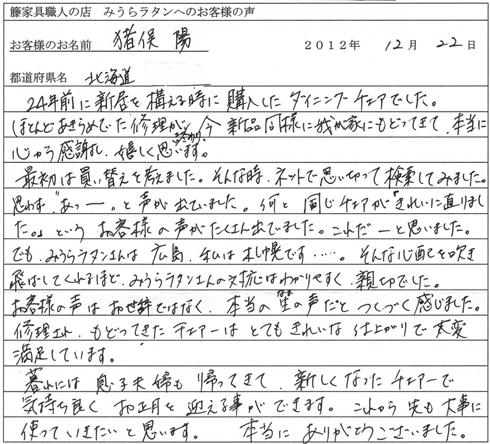 籐家具職人の店 みうらラタンへのお客様の声
お客様のお名前 猪俣 陽 2012年 12月 22日
都道府県名 北海道
24年前に新居を構える時に購入したダイニングチェアでした。
ほとんどあきらめてた修理が終わり、今新品同様に我が家にもどってきて、本当に
心から感謝し、嬉しく思います。
最初は買い替えを考えました。そんな時、ネットで思い切って検索してみました。
思わず、“あっー。”と声が出ていました。何と「同じチェアがきれいに直りまし
た。」という お客様の声がたくさん出ていました。これだーと思いました。
でも、みうらラタンさんは 広島、私は札幌です……。そんな心配を吹き
飛ばしてくれるほど、みうらラタンさんの対応はわかりやすく、親切でした。
お客様の声は お世辞ではなく、本当の 生の声だと つくづく感じました。
修理され、もどってきた チェアーは とてもきれいな 仕上がりで 大変
満足しています。
暮れには 息子夫婦も 帰ってきて、新しくなったチェアーで
気持ち良く お正月を 迎える事ができます。これから先も大事に
使っていきたいと思います。 本当に ありがとうございました。